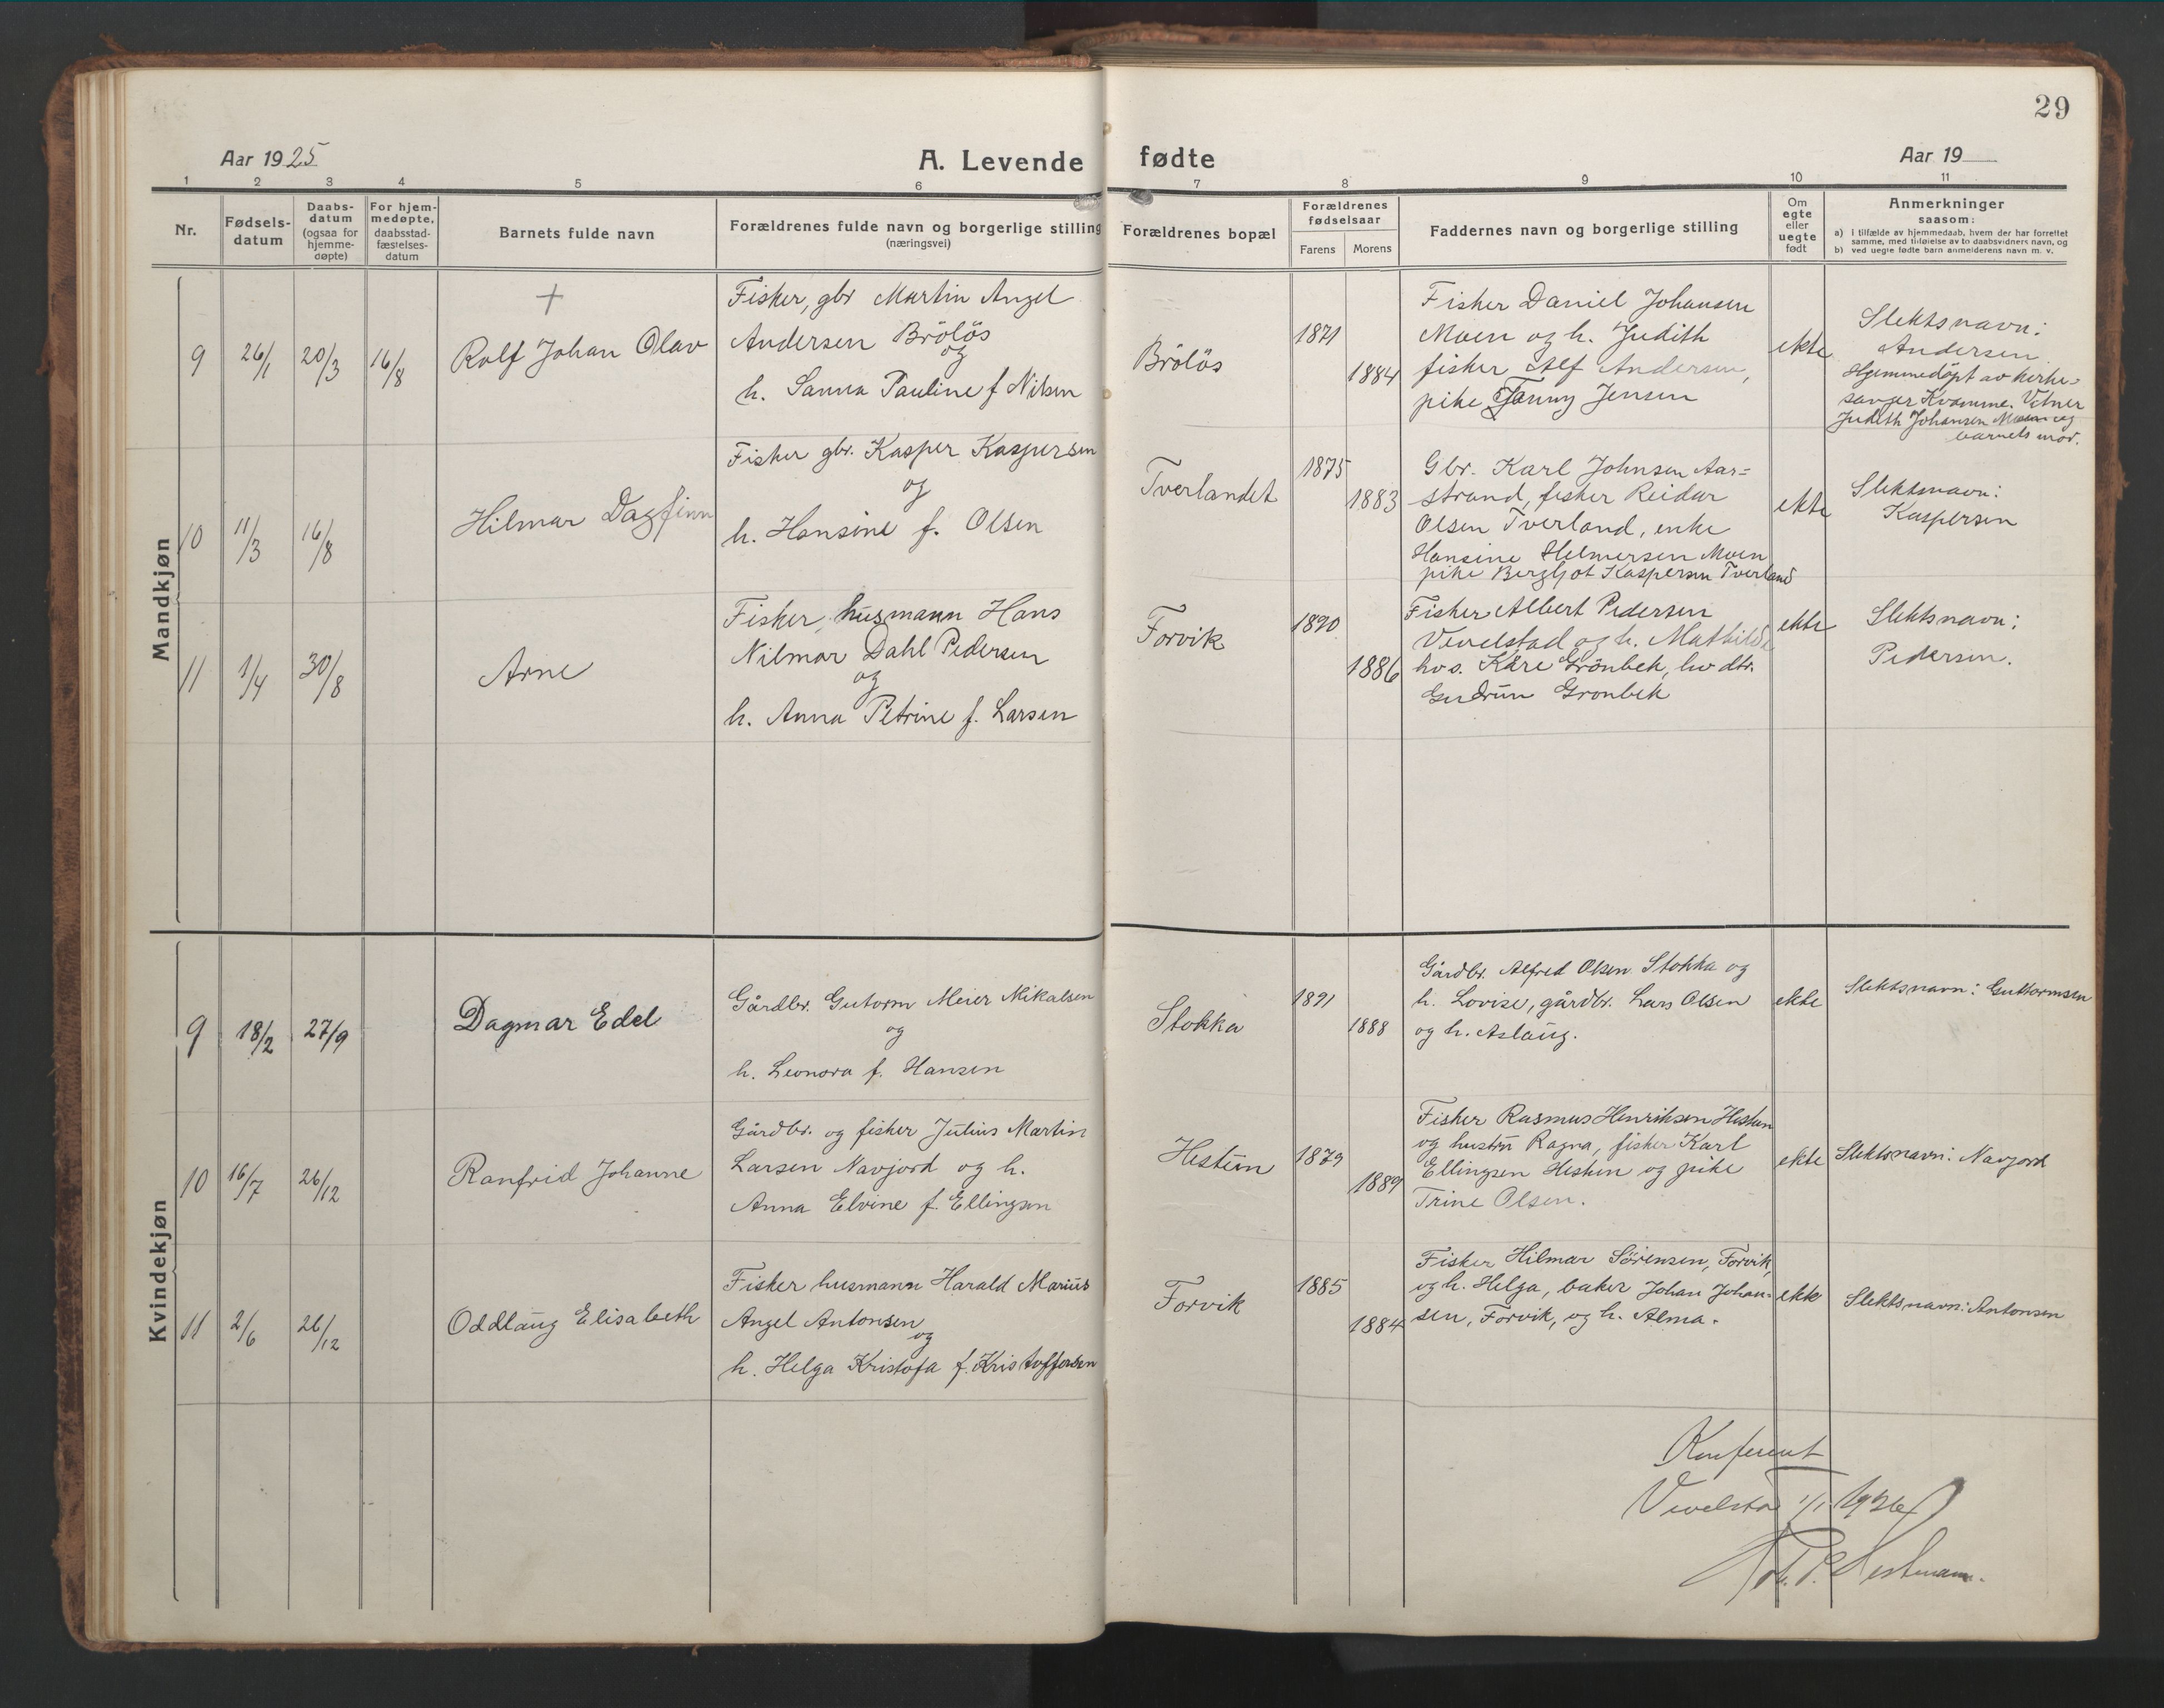 29
Aar 1925
A. Levende fødte
Aar 19
1 2 3 4 5 6 7 8 9 10 11
Nr.
Fødsels-
datum
Daabs-
datum
(ogsaa for
hjemme-
døpte)
For hjem-
medøpte,
daabsstad-
fæstelses-
datum
Barnets fulde navn
Forældrenes fulde navn og borgerlige stilling
(næringsvei)
Forældrenes bopæl
Forældrenes
fødselsaar
Farens Morens
Faddernes navn og borgerlige stilling
Om
egte
eller
uegte
født
Anmerkninger
saasom:
a) i tilfælde av hjemmedaab, hvem der har forrettet
samme, med tilføielse av to daabsvidners navn, og
b) ved uegte fødte barn anmelderens navn m. v.
Mandkjøn
9 26/1 20/3 16/8
+
Rolf Johan Olav
Fisker, gbr Martin Angel
Andersen Brölös
og
h. Sanna Pauline f Nilsen
Brölös
1871
1884
Fisker Daniel Johansen
Moen og h. Judith
fisker Alf Andersen,
pike Fanny Jensen
ekte
Slektsnavn:
Andersen.
Hjemmedöpt av kirke-
sanger Kvamme. Vitner
Judith Johansen Moen og
barnets mor.
10 11/3 16/8
Hilmar Dagfinn
Fisker gbr. Kasper Kaspersen
og
h. Hansine f. Olsen
Tverlandet
1875
1883
Gbr. Karl Johnsen Aar=
strand, fisker Reidar
Olsen Tverland, enke
Hansine Helmersen Moen
pike Bergljot Kaspersen Tverland
ekte
Slektsnavn:
Kaspersen
11 1/4 30/8
Arne
Fisker, husmann Hans
Nilmar Dahl Pedersen
og
h. Anna Petrine f. Larsen
Forvik
1890
1886
Fisker Albert Pedersen
Vevelstad og h. Mathilde
hvs. Kåre Grönbek, hv dtr.
Gudrun Gronbek
ekte
Slektsnavn:
Pedersen.
Kvindekjøn
9 18/2 27/9
Dagmar Edel
Gårdbr. Gutorm Meier Mikalsen
og
h. Leonora f. Hansen
Stokka
1891
1888
Gårdbr. Alfred Olsen Stokka og
h. Lovise, gårdbr. Lars Olsen
og h. Aslaug.
ekte
Slektsnavn: Guttormsen
10 16/7 26/12
Ranfrid Johanne
Gårdbr. og fisker Julius Martin
Larsen Navjord og h.
Anna Elvine f. Ellingsen
Hestun
1879
1889
Fisker Rasmus Henriksen Hestun
og hustru Ragna, fisker Karl
Ellingsen Hestun og pike
Trine Olsen.
ekte
Slektsnavn: Navjord
11 2/6 26/12
Oddlaug Elisabeth
Fisker husmann Harald Marius
Angel Antonsen
og
h. Helga Kristofa f. Kristoffersen
Forvik
1885
1884
Fisker Hilmar Sörensen, Forvik,
og h. Helga, baker Johan Johan-
sen, Forvik, og h. Alma.
ekte
Slektsnavn: Antonsen
Konferert
Vevelstad 1/1 1926